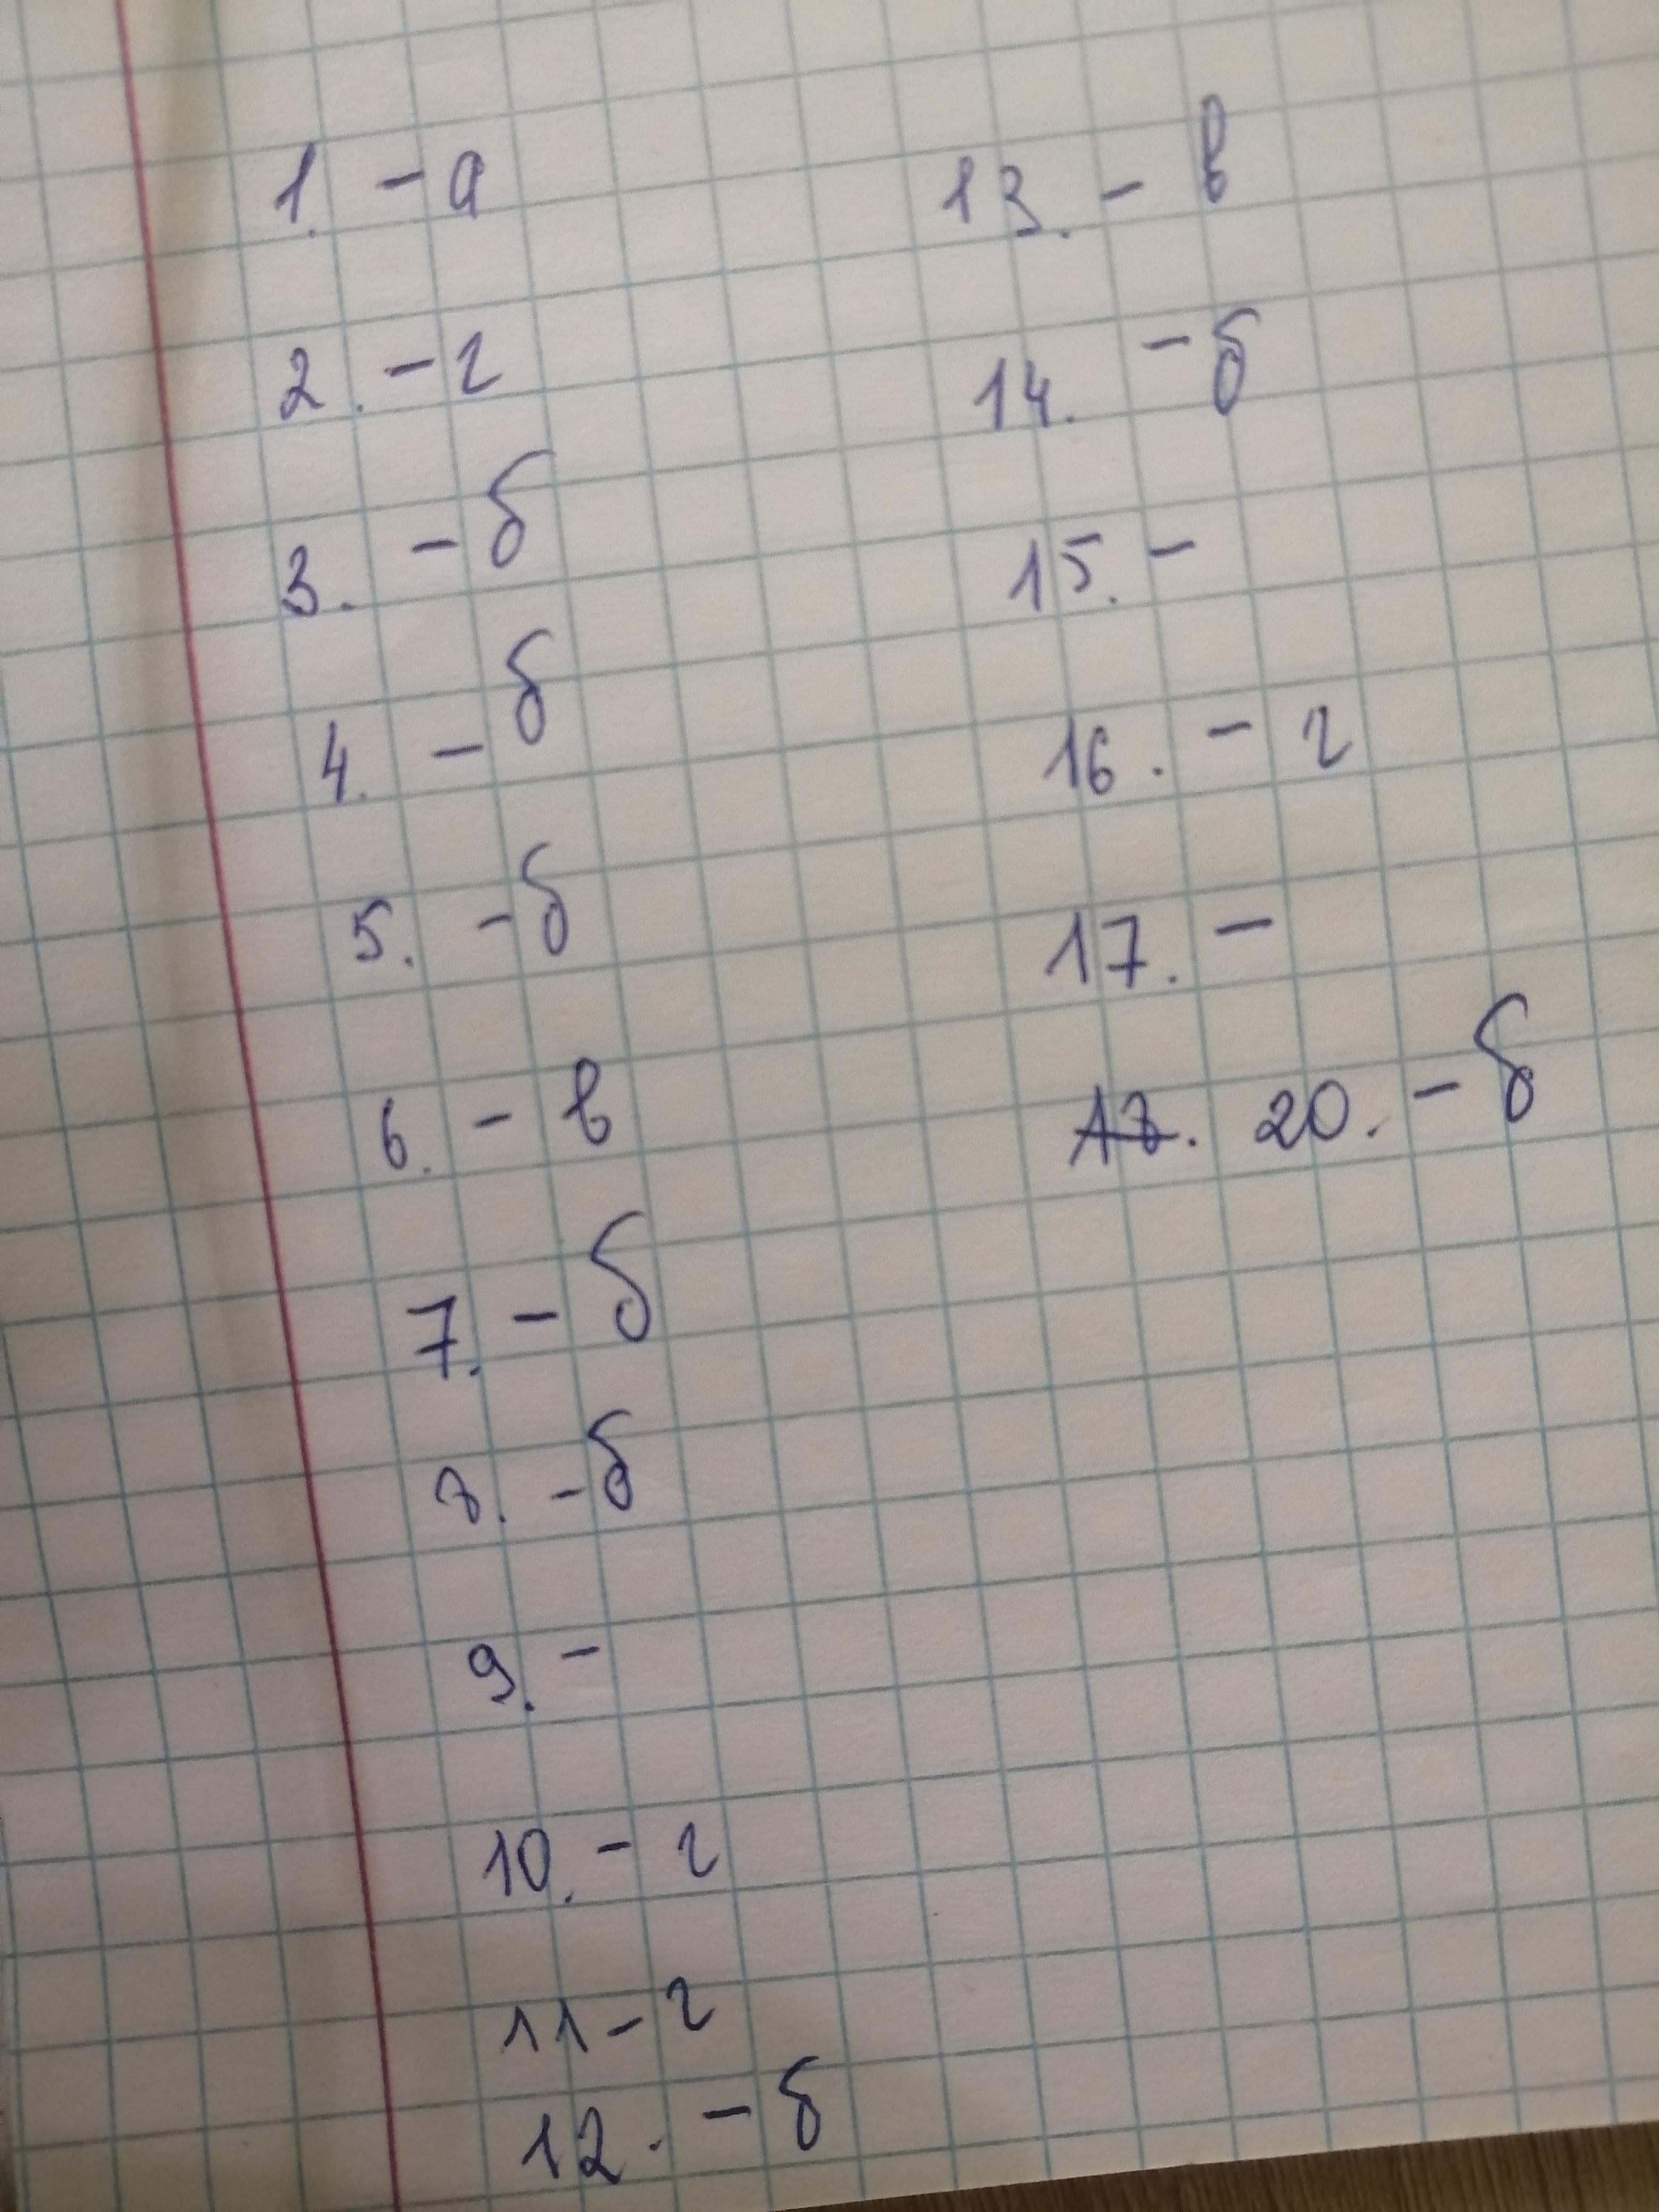 1. - а
2. - г
3. - б
4. - б
5. - б
6. - в
7. - б
8. - б
9. -
10. - г
11 - г
12. - б
13. - в
14. - б
15. -
16. - г
17. -
18. 20. - б